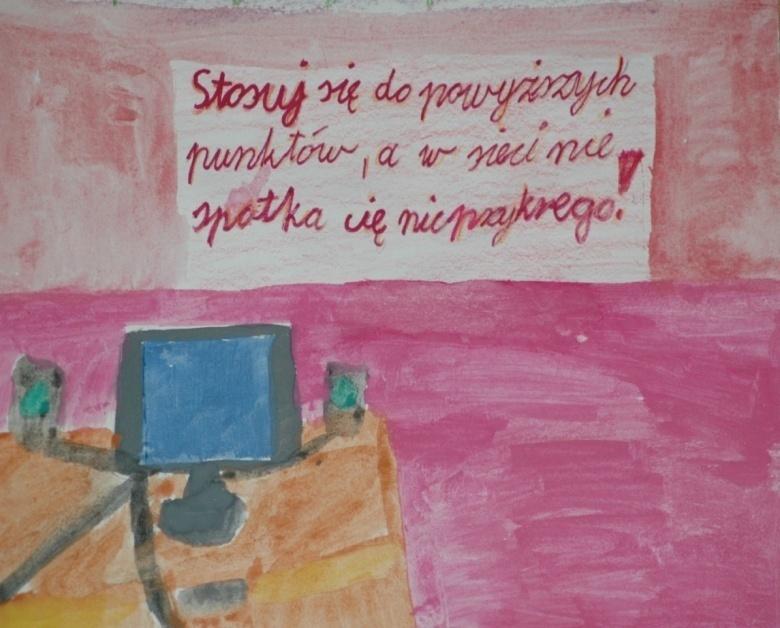 Stosuj się do powyższych
punktów, a w sieci nie
spotka cię nic przykrego!